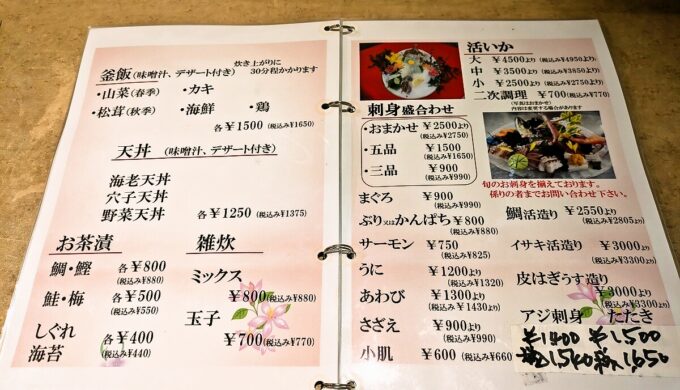 釜飯(味噌汁、デザート付き) 炊き上がりに30分程かかります
・山菜(春季) ・カキ
・松茸(秋季) ・海鮮 ・鶏
各¥1500(税込み¥1650)
天丼 (味噌汁、デザート付き)
海老天丼
穴子天丼
野菜天丼 各¥1250(税込み¥1375)
お茶漬
鯛・鰹 各¥800(税込み¥880)
鮭・梅 各¥500(税込み¥550)
しぐれ
海苔 各¥400(税込み¥440)
雑炊
ミックス
¥800(税込み¥880)
玉子
¥700(税込み¥770)
活いか
大 ¥4500より(税込み¥4950より)
中 ¥3500より(税込み¥3850より)
小 ¥2500より(税込み¥2750より)
二次調理 ¥700(税込み¥770)
(写真はおまかせ)
内容は変更する場合があります
刺身盛合わせ
・おまかせ ¥2500より(税込み¥2750)
・五品 ¥1500(税込み¥1650)
・三品 ¥900(税込み¥990)
旬のお刺身を揃えております。
係りの者までお問い合わせ下さい。
まぐろ ¥900(税込み¥990)
ぶり又はかんぱち ¥800(税込み¥880)
サーモン ¥750(税込み¥825)
うに ¥1200より(税込み¥1320)
あわび ¥1300より(税込み¥1430より)
さざえ ¥900より(税込み¥990)
小肌 ¥600(税込み¥660)
鯛活造り ¥2550より(税込み¥2805より)
イサキ活造り ¥3000より(税込み¥3300より)
皮はぎうす造り
¥3000より(税込み¥3300より)
アジ刺身 たたき
¥1400 ¥1,500
税込1,540 税込1,650